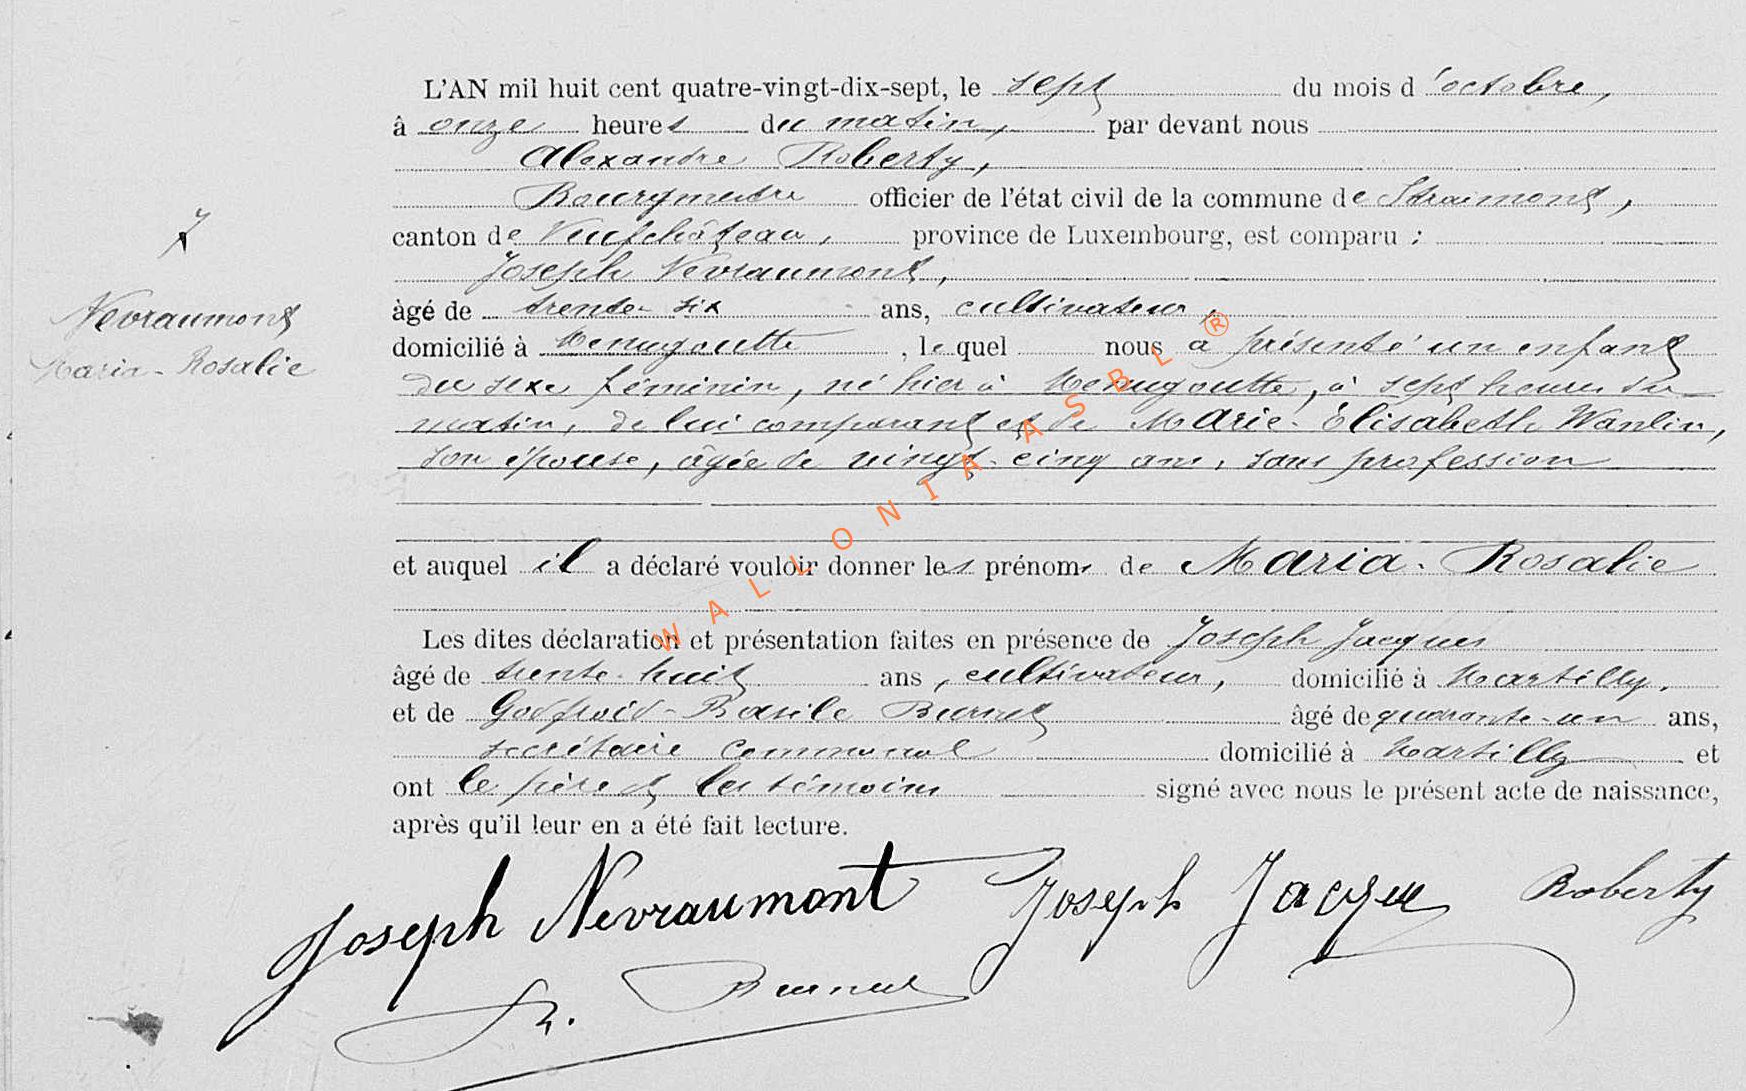 L'AN mil huit cent quatre-vingt-dix-sept, le sept du mois d'octobre,
à onze heures du matin, par devant nous
Alexandre Roberty,
Bourgmestre officier de l'état civil de la commune de Straimont,
canton de Neufchâteau, province de Luxembourg, est comparu :
Joseph Nevraumont,
âgé de trente-six ans, cultivateur,
domicilié à Menugoutte, lequel nous a présenté un enfant
du sexe féminin, né hier à Menugoutte, à sept heures du
matin, de lui comparant et de Marie-Élisabeth Wanlin,
son épouse, âgée de vingt-cinq ans, sans profession
et auquel il a déclaré vouloir donner les prénoms de Maria-Rosalie
Les dites déclaration et présentation faites en présence de Joseph Jacques
âgé de trente-huit ans, cultivateur, domicilié à Martilly,
et de Godfroid-Basile Burnet âgé de quarante-un ans,
secrétaire communal domicilié à Martilly et
ont le père et les témoins signé avec nous le présent acte de naissance,
après qu'il leur en a été fait lecture.
7
Nevraumont
Maria-Rosalie
Joseph Nevraumont Joseph Jacque Roberty
WALLONIA ASBL ®